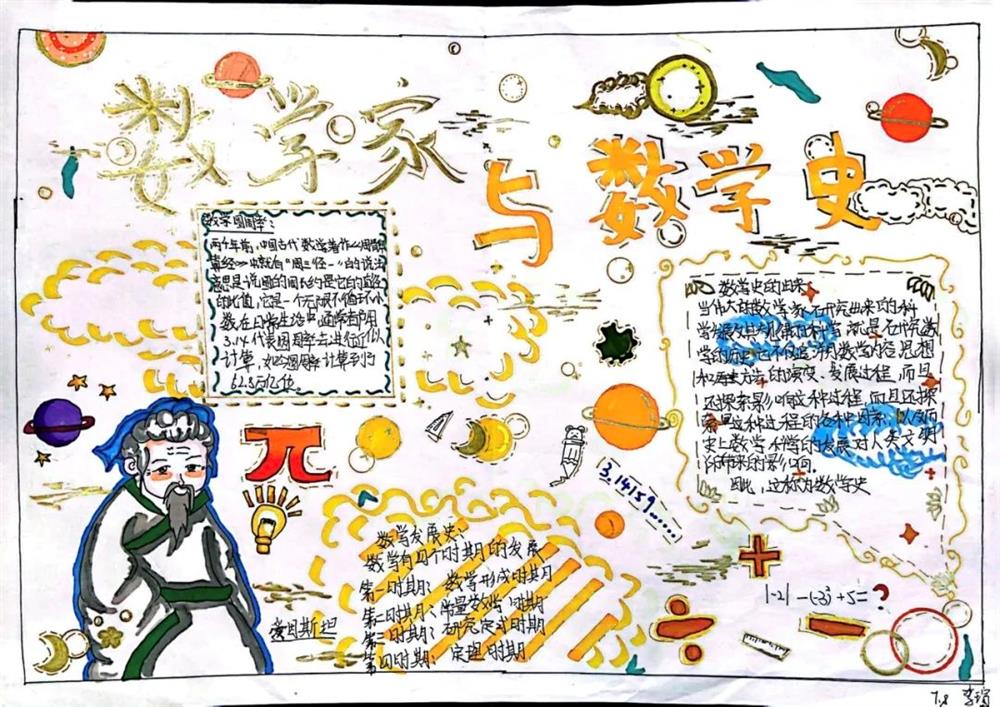 数学家
与数学史
数学圆周率：
两千年前，中国古代数学著作《周髀
算经》中就有"周三径一"的说法
意思是说圆的周长约是它的直径
的比值，它是一个无限不循环小
数在日常生活中，通常都用
3.14代表圆周率去进行近似
计算，
62.8万亿位。
数学史的由来
学的历史，它不仅追溯数学内容思想
的演变、发展过程，而且
还探索影响这种过程，而且还探
索量这种过程的各种因素，以及历
史上数学科学的发展对人类文明
所带来的影响。
因此，这称为数学史
π
3.14159......
数学发展史：
数学有四个时期的发展
第一时期：数学形成时期
第二时期：常量数学时期
第三时期：研究定式时期
第四时期：定理时期
爱因斯坦
+
÷
|-2|-(-3)+5=?
7.8